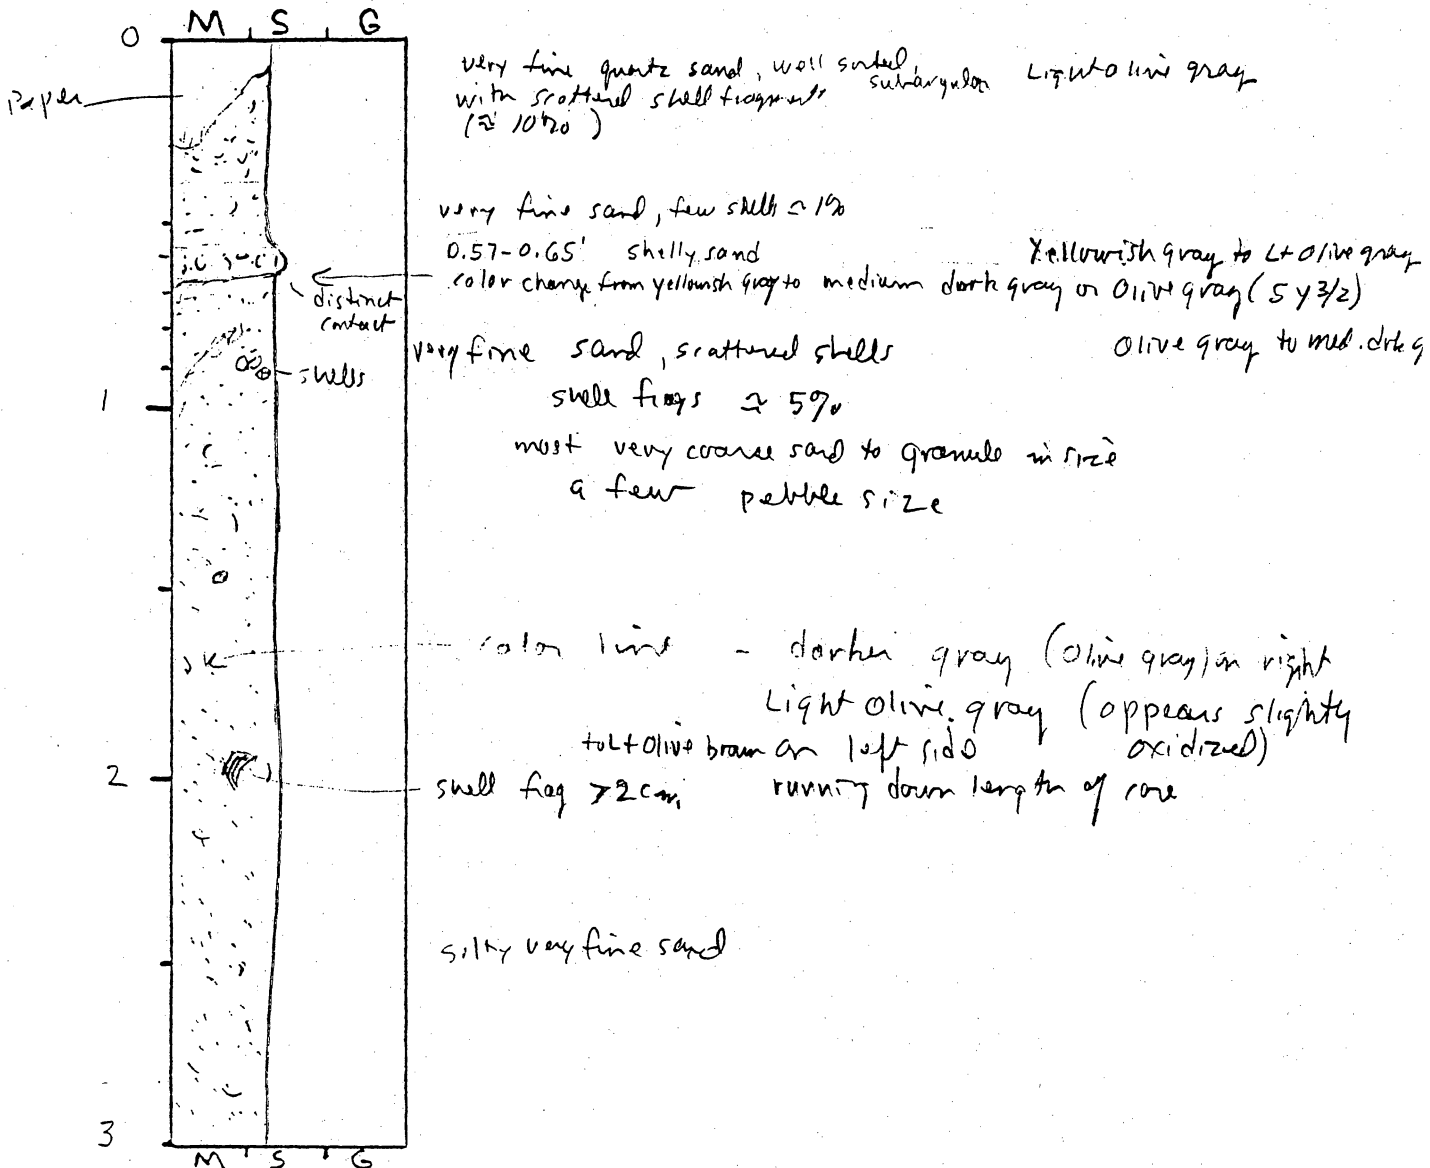 M S G
0
Paper
very fine quartz sand, well sorted, subangular Light Olive gray
with scattered shell fragments
(≈ 10%)
very fine sand, few shells ≃ 1%
0.57-0.65' shelly sand Yellowish gray to Lt Olive gray
color change from yellowish gray to medium dark gray or Olive gray (5 y 3/2)
distinct
contact
very fine sand, scattered shells Olive gray to med. drk g
shells
shell frags ≃ 5%
1
most very coarse sand to granule in size
a few pebble size
color line - darker gray (Olive gray) on right
Light Olive gray (appears slightly
to Lt Olive brown on left side oxidized)
2
shell frag >2cm, running down length of core
silty very fine sand
3
M S G